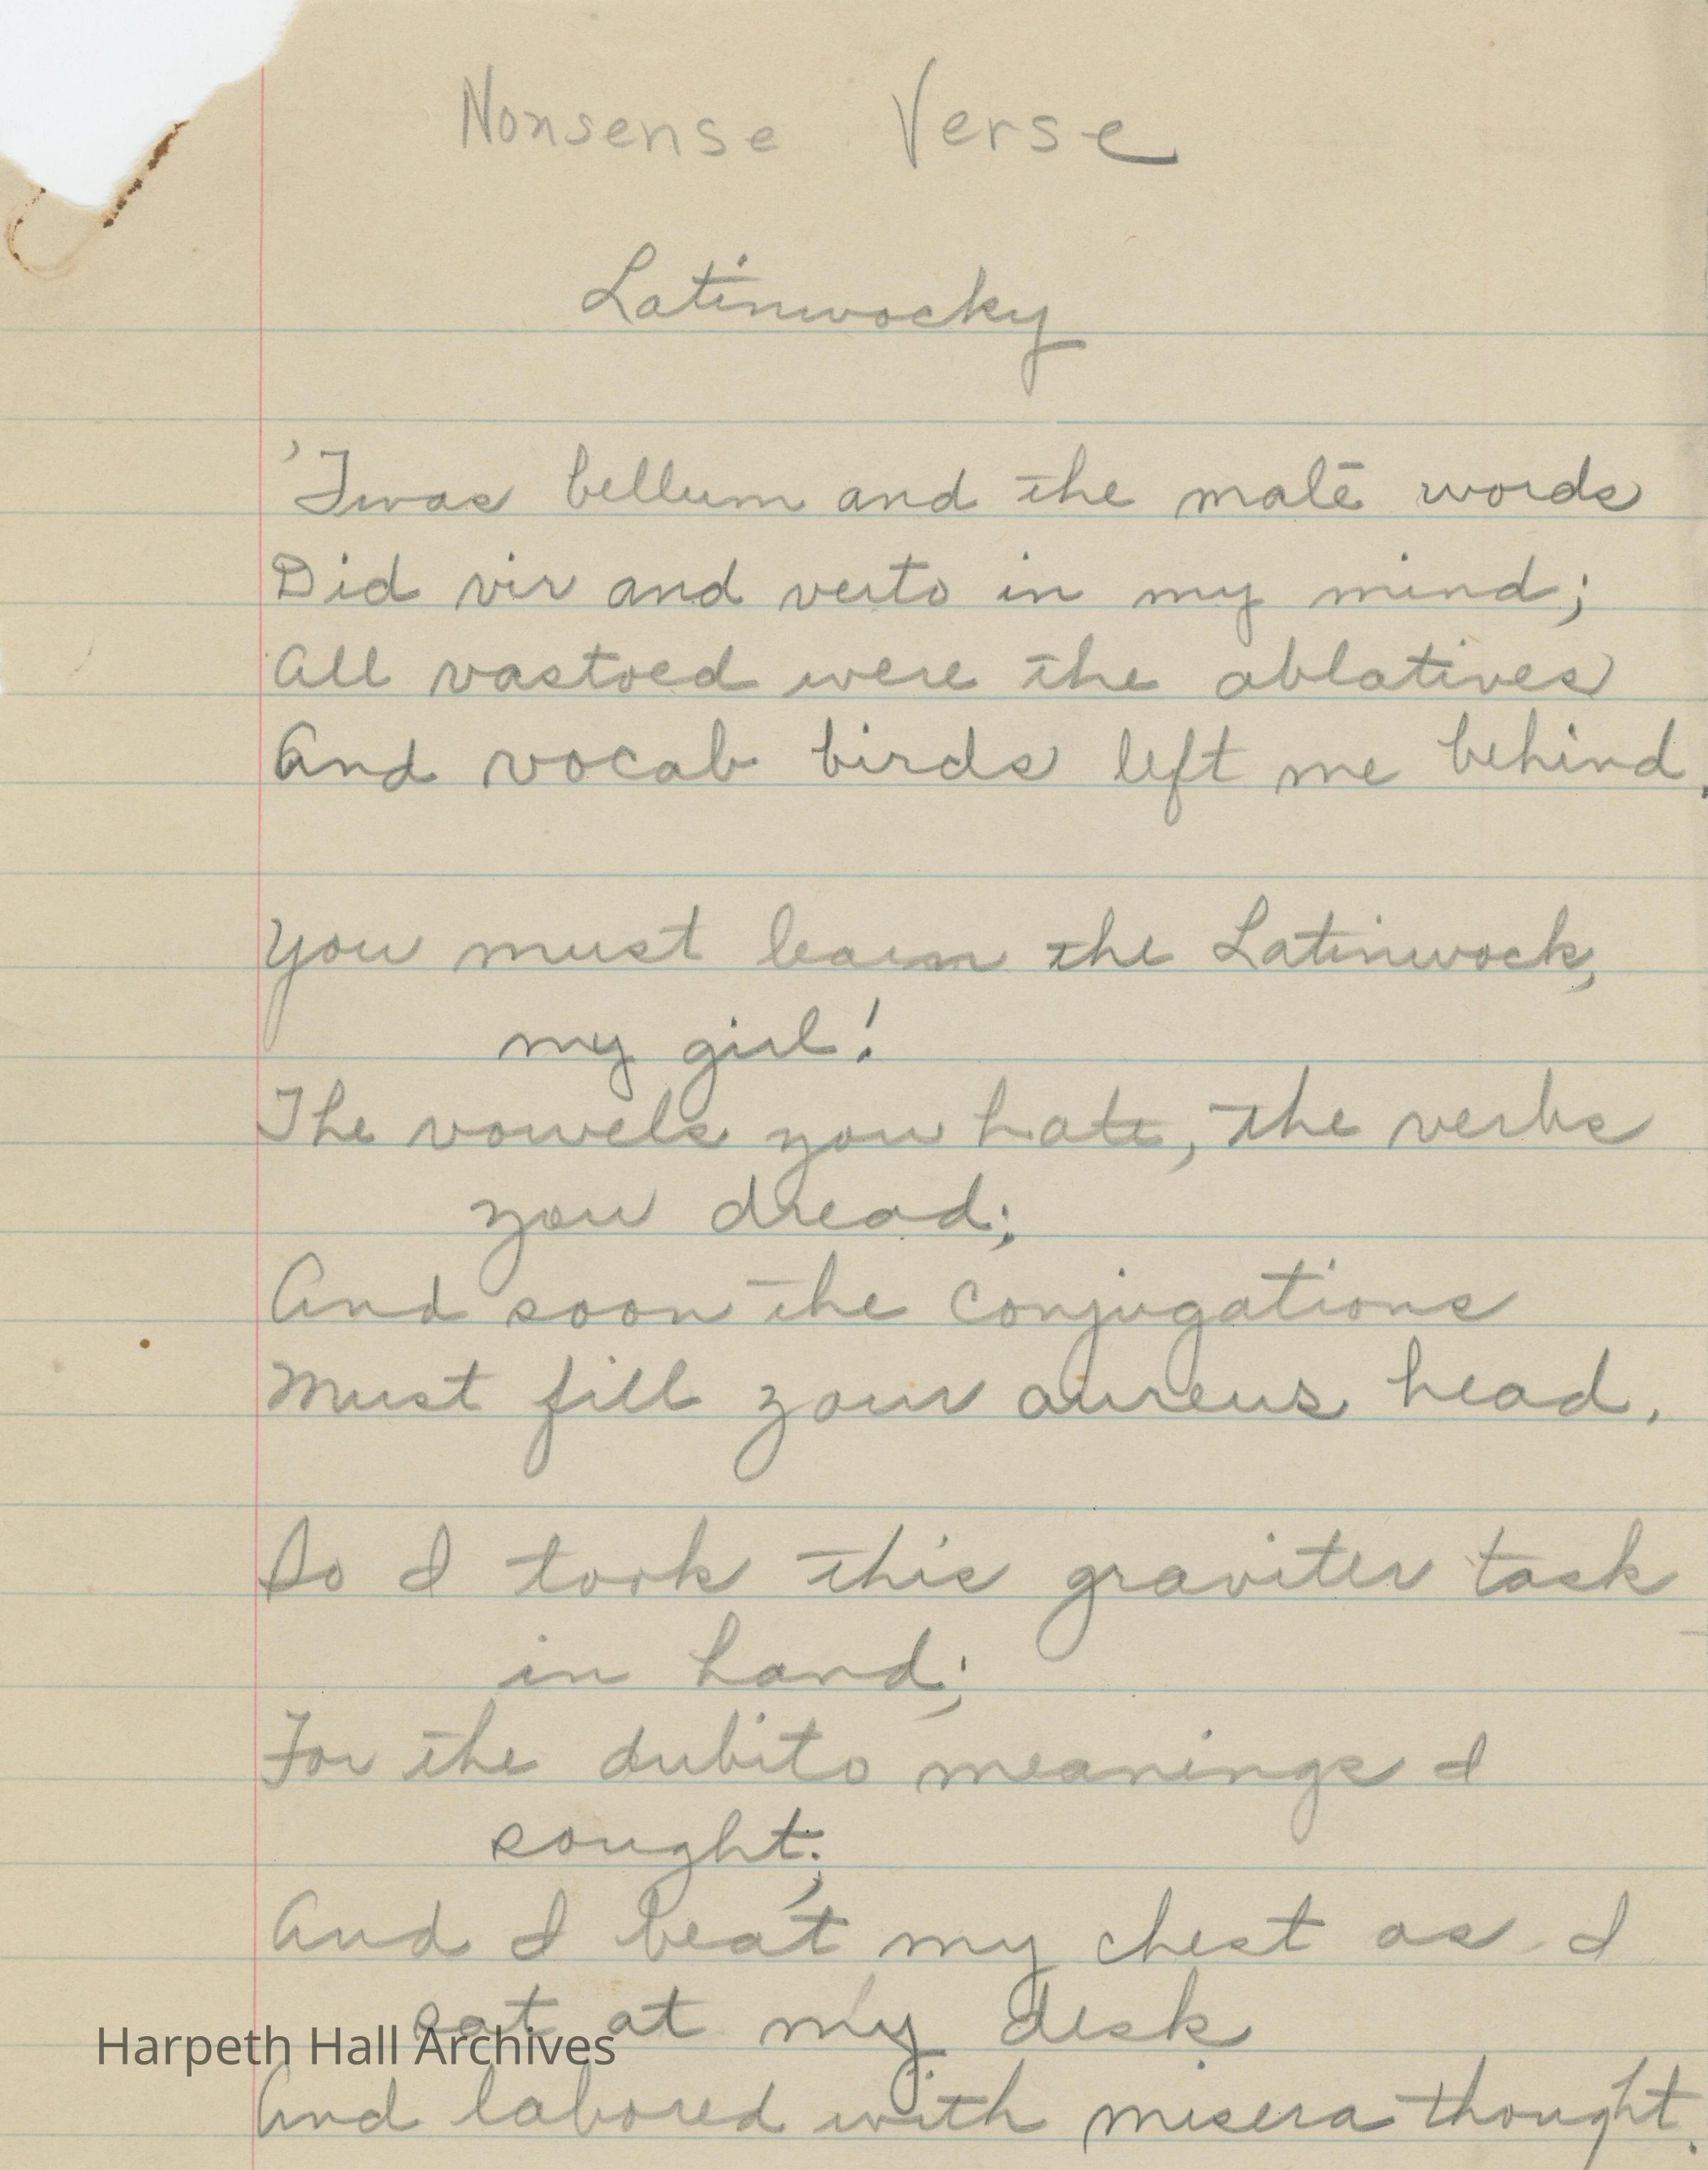 Nonsense Verse
Latinwocky
'Twas bellum and the malē words
Did vir and verto in my mind;
All vastoed were the ablatives
And vocab birds left me behind.
You must learn the Latinwock,
my girl!
The vowels you hate, the verbs
you dread;
And soon the conjugations
Must fill your aureus head.
So I took this graviter task
in hand;
For the dubito meanings I
sought;
And I beat my chest as I
sat at my desk
Harpeth Hall Archives
And labored with misera thought.